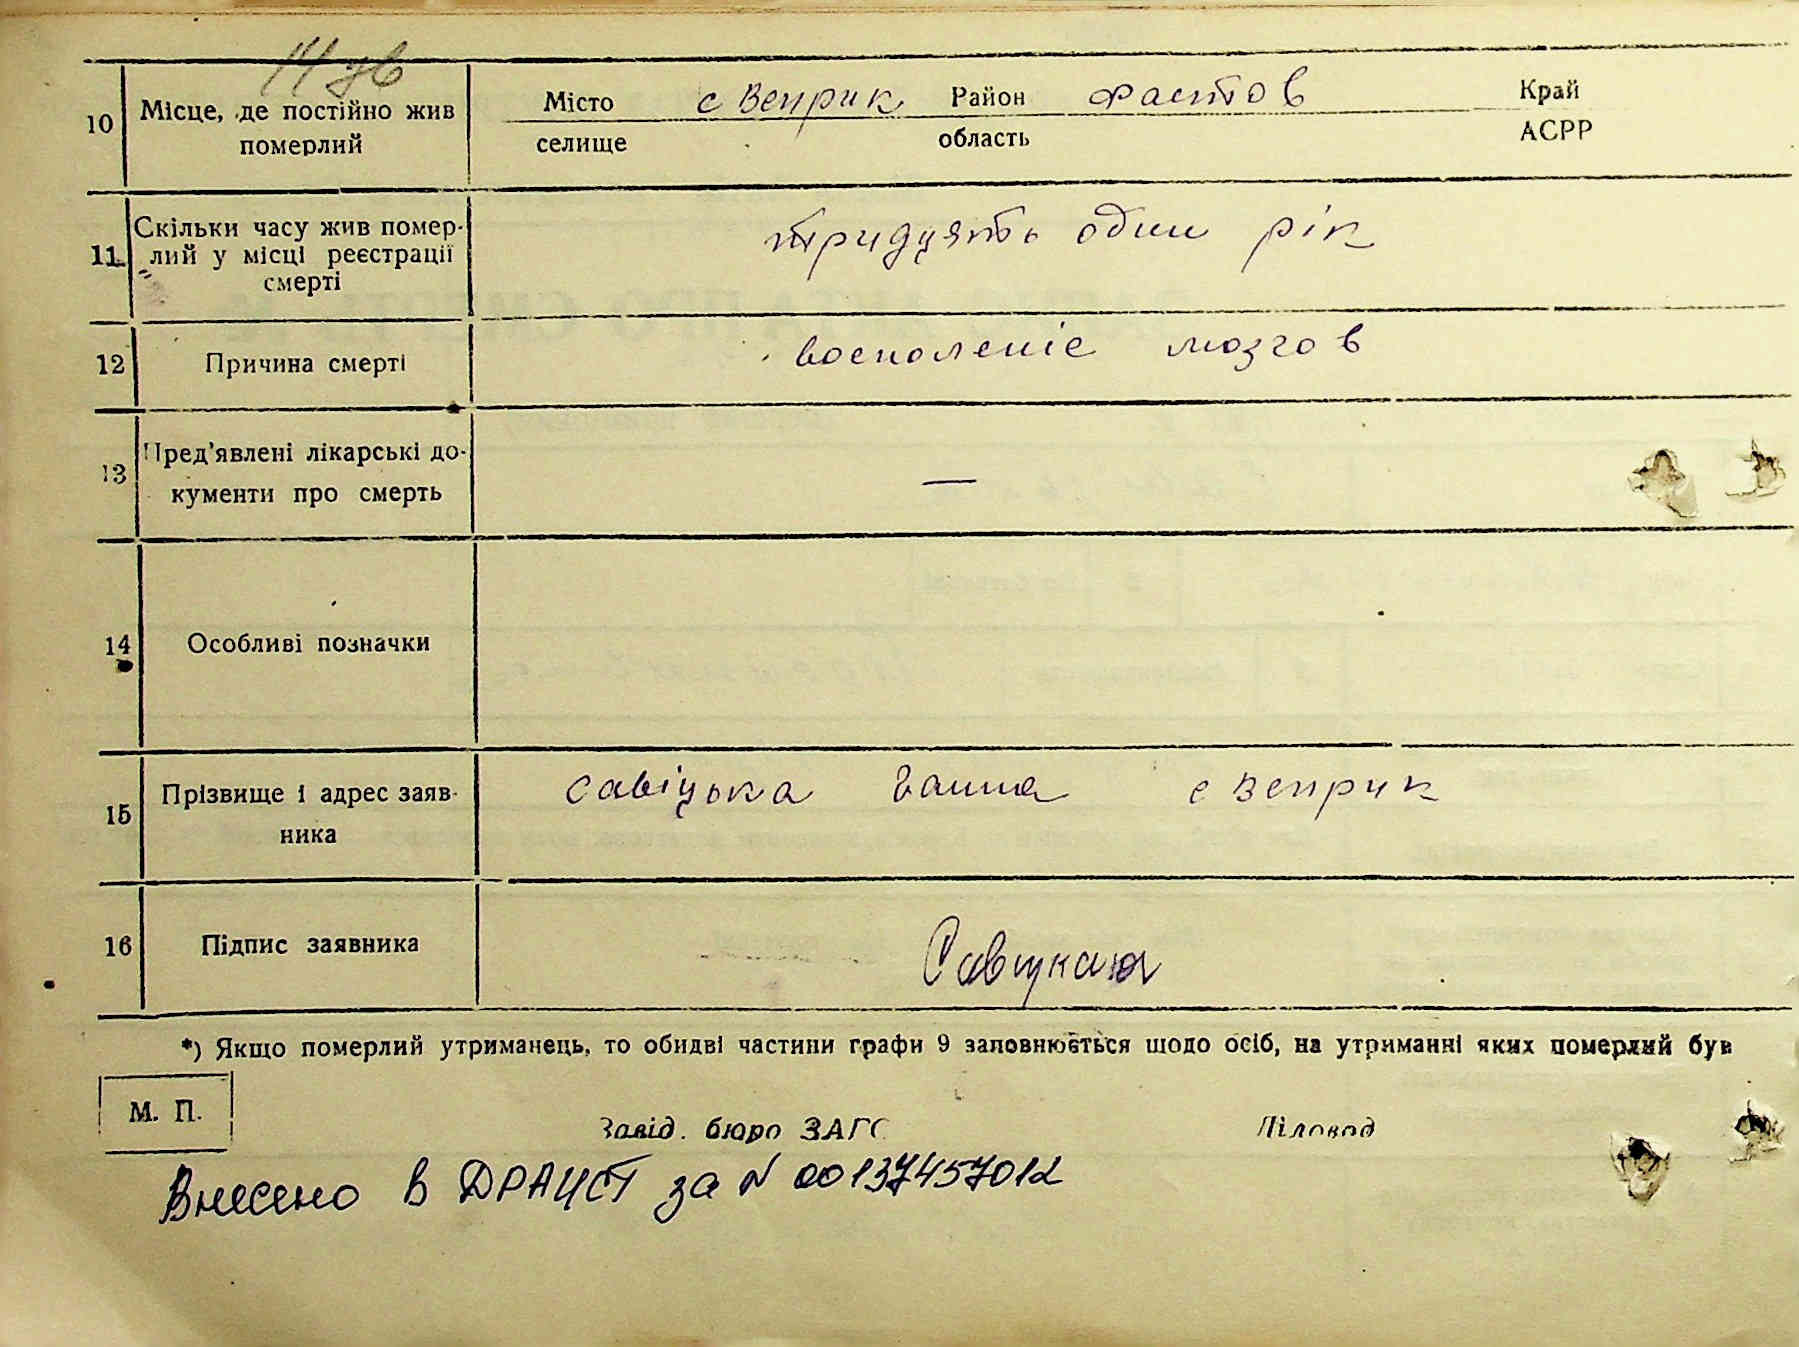 11 зв
10 Місце, де постійно жив померлий Місто с Веприк Район Фастов Край
селище область АСРР
11 Скільки часу жив помер-
лий у місці реєстрації
смерті тридцять один рік
12 Причина смерті восполеніє мозгов
13 Пред'явлені лікарські до-
кументи про смерть —
14 Особливі позначки
15 Прізвище і адрес заяв-
ника савіцька ганна с Веприк
16 Підпис заявника
*) Якщо померлий утриманець, то обидві частини графи 9 заповнюється щодо осіб, на утриманні яких померлий був
М. П.
Завід. бюро ЗАГС Діловод
Внесено в ДРАЦСТ за N 00137457012